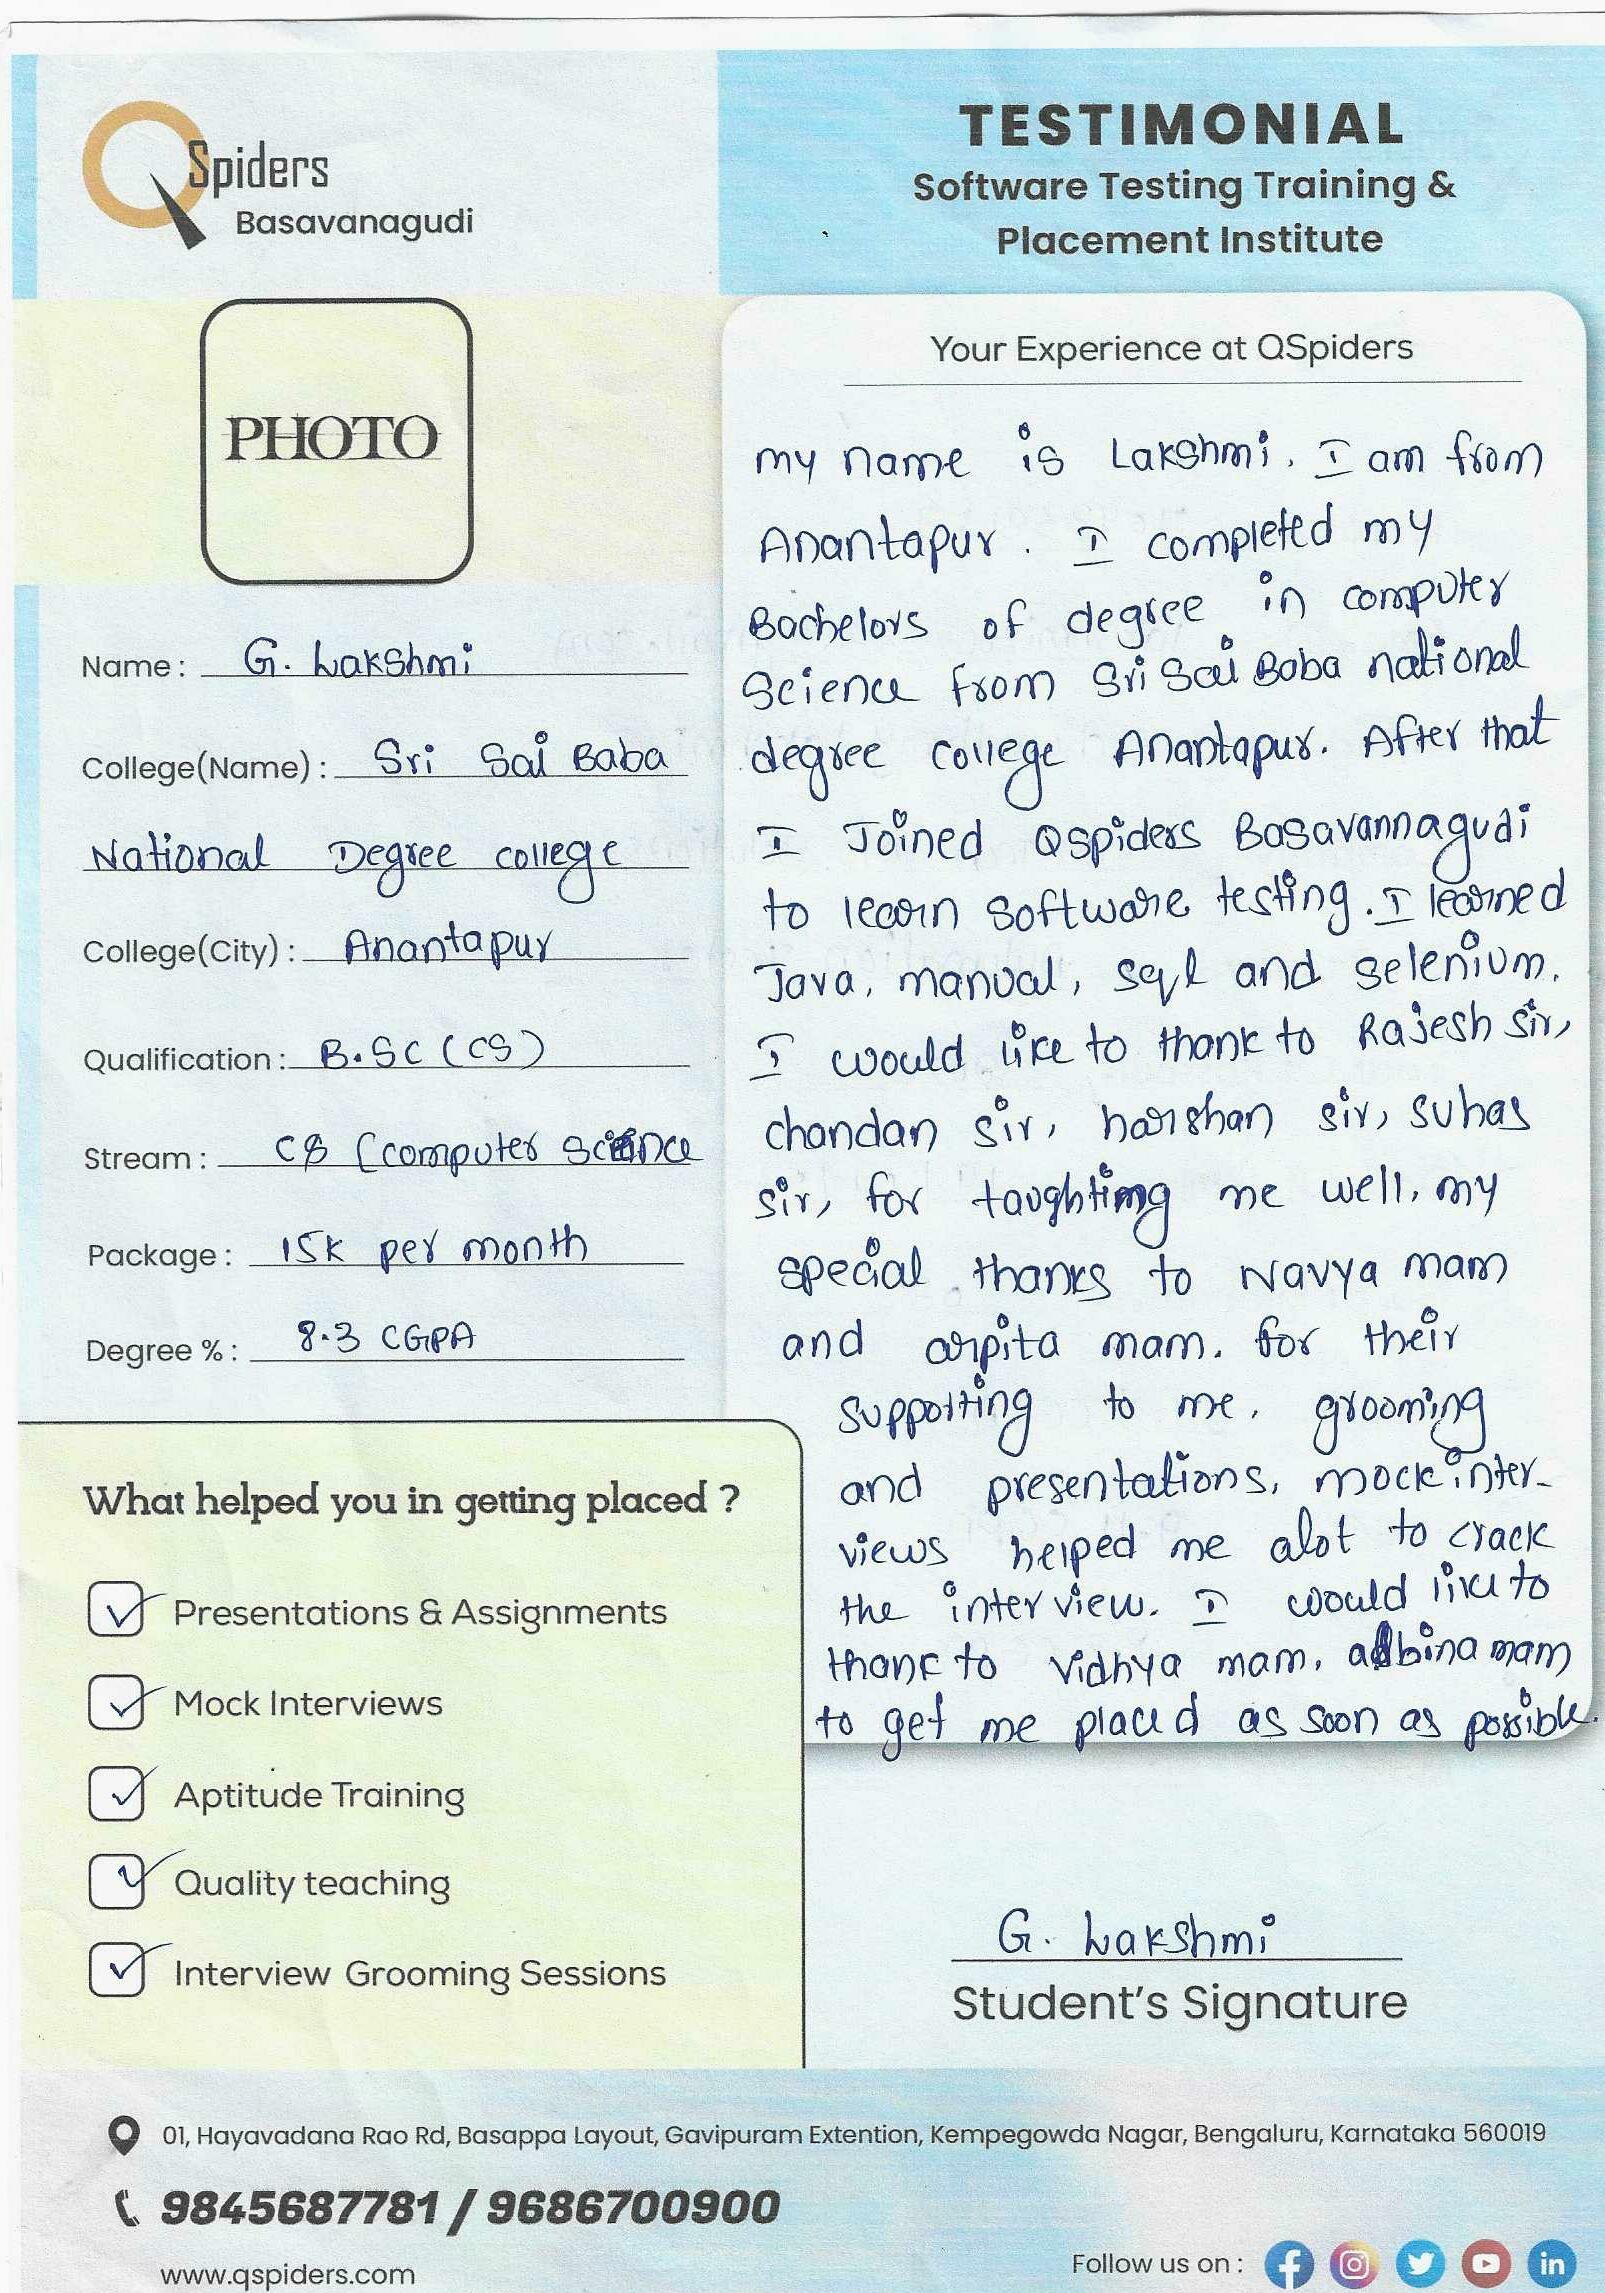 QSpiders
Basavanagudi
TESTIMONIAL
Software Testing Training &
Placement Institute
PHOTO
Name : G. Lakshmi
College(Name) : Sri Sai Baba
National Degree college
College(City) : Anantapur
Qualification : B.SC (CS)
Stream : CS (computer science
Package : 15k per month
Degree % : 8.3 CGPA
What helped you in getting placed ?
Presentations & Assignments
Mock Interviews
Aptitude Training
Quality teaching
Interview Grooming Sessions
Your Experience at QSpiders
my name is Lakshmi. I am from
Anantapur. I completed my
Bachelors of degree in computer
Science from Sri Sai Baba national
degree college Anantapur. After that
I Joined Qspiders Basavannagudi
to learn software testing. I learned
Java, manual, sql and selenium.
I would like to thank to Rajesh sir,
chandan sir, harshan sir, suhas
sir, for taughting me well, my
special thanks to Navya mam
and arpita mam. for their
supporting to me, grooming
and presentations, mock inter-
views helped me alot to crack
the interview. I would like to
thank to Vidhya mam, albina mam
to get me placed as soon as possible.
G. Lakshmi
Student's Signature
01, Hayavadana Rao Rd, Basappa Layout, Gavipuram Extention, Kempegowda Nagar, Bengaluru, Karnataka 560019
9845687781 / 9686700900
www.qspiders.com
Follow us on :